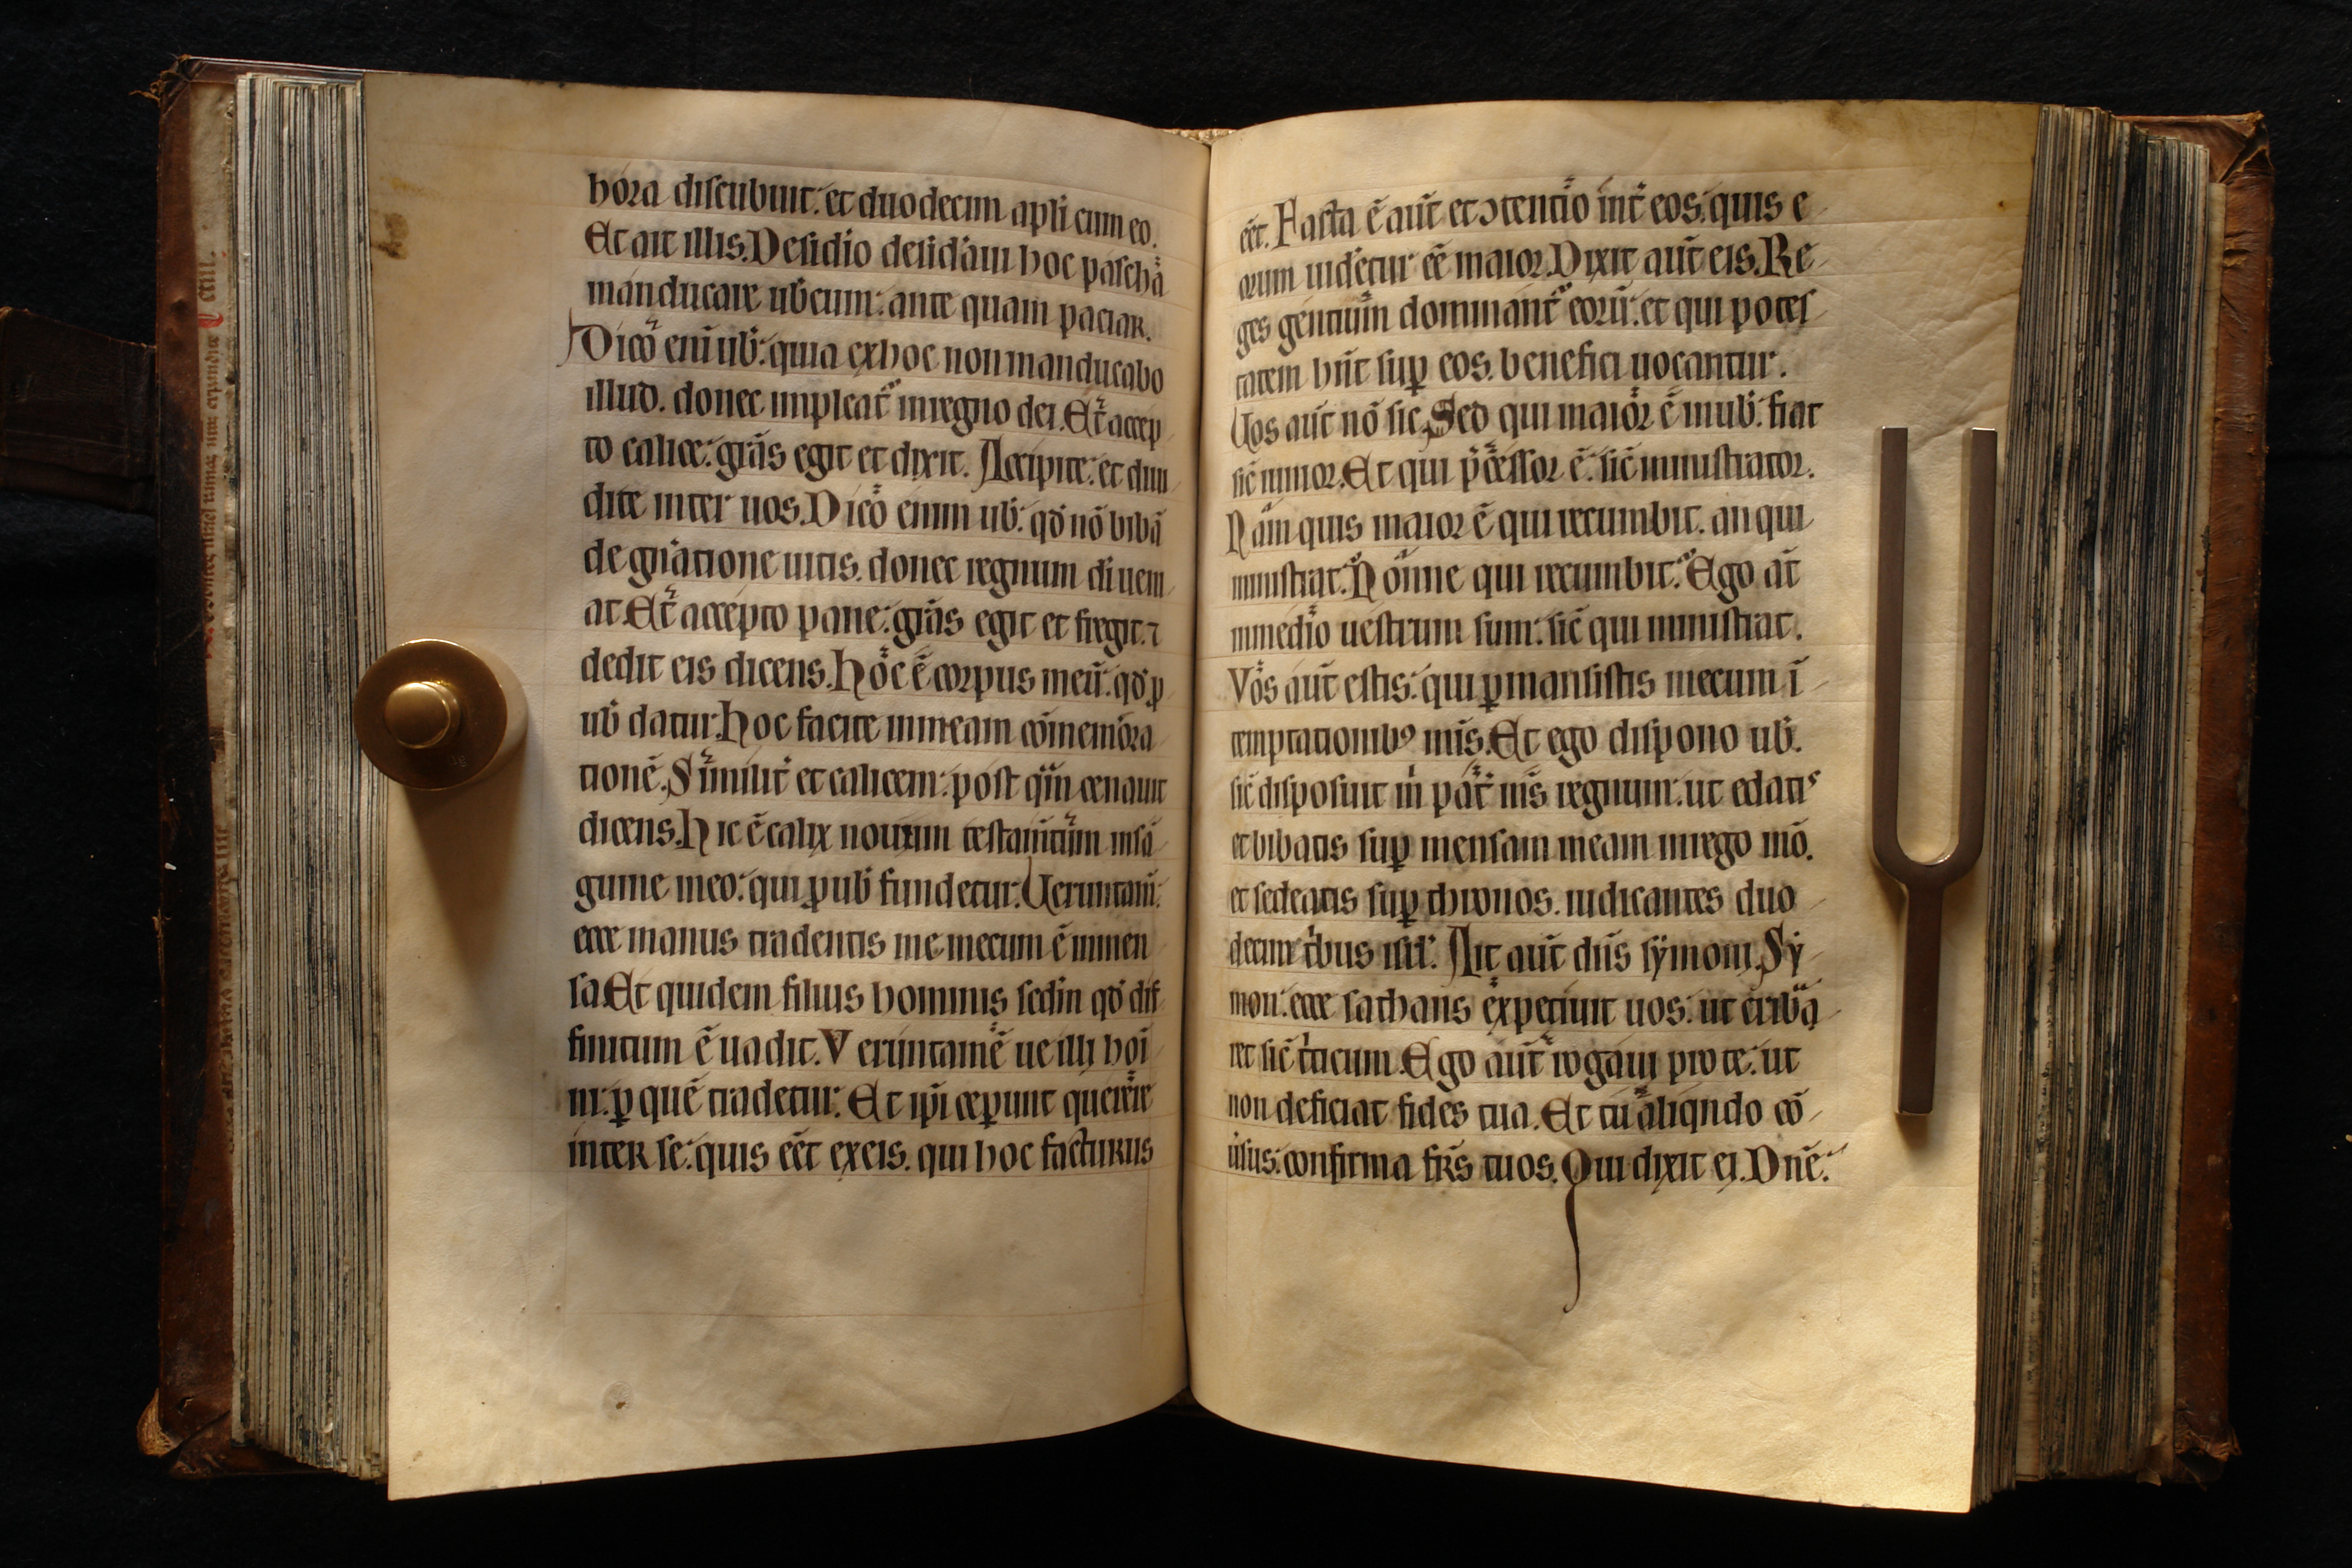 hora discubuit. et duodecim apłi cum eo.
Et ait illis. Desidio desid'aui hoc pascha
manducare ub̄cum: ante quam paciar.
Dico eni ub̄: quia ex hoc non manducabo
illud. donec impleat̄ in regno dei. Et accep
to calice: gr̄as egit et dixit. Accipite: et diui
dite inter uos. Dico enim ub̄: qd̄ nō bibā
de gn̄atione uitis. donec regnum dī ueni
at. Et accepto pane: gr̄as egit et fregit: ⁊
dedit eis dicens. Hoc ē corpus meū: qd̄ ꝑ
ub̄ datur. Hoc facite in meam cōmemora
tionē. Similit̄ et calicem: post qm̄ cenauit
dicens. Hic ē calix nouum testam̄tum in sā
guine meo: qui ꝑ ub̄ fundetur. Ueruntam̄:
ecce manus tradentis me mecum ē in men
sa. Et quidem filius hominis sedm̄ qd̄ dif
finitum ē uadit. Veruntamē ue illi hoī
ni: ꝑ quē tradetur. Et ip̄i ceꝑunt querere
inter se: quis eēt ex eis. qui hoc facturus
eēt. Facta ē aūt et ↄtentio int̄ eos: quis e
orum uidetur eē maior. Dixit aūt eis. Re
ges gentium dominant̄ eorū: et qui potes
tatem hn̄t suꝑ eos. benefici uocantur.
Uos aūt nō sic. Sed qui maior ē in ub̄. fiat
sic̄ iunior. Et qui p̄cessor ē: sic̄ ministrator.
Nam quis maior ē qui recumbit. an qui
ministrat. Nonne qui recumbit. Ego at̄
in medio uestrum sum: sic̄ qui ministrat.
Vos aūt estis: qui ꝑmansistis mecum ī
temptationibꝰ mīs. Et ego dispono ub̄.
sic̄ disposuit m̄ pat̄ mīs regnum: ut edatis
et bibatis suꝑ mensam meam in rego mō.
et sedeatis suꝑ thronos. iudicantes duo
decim tb̄us isrł. Ait aūt dn̄s sẏmoni. Sẏ
mon: ecce sathans expetiuit uos: ut cribā
ret sic̄ t̄ticum. Ego aūt rogaui pro te: ut
non deficiat fides tua. Et tu aliqndo cō
uīsus: confirma fr̄s tuos. Qui dixit ei. Dn̄e.